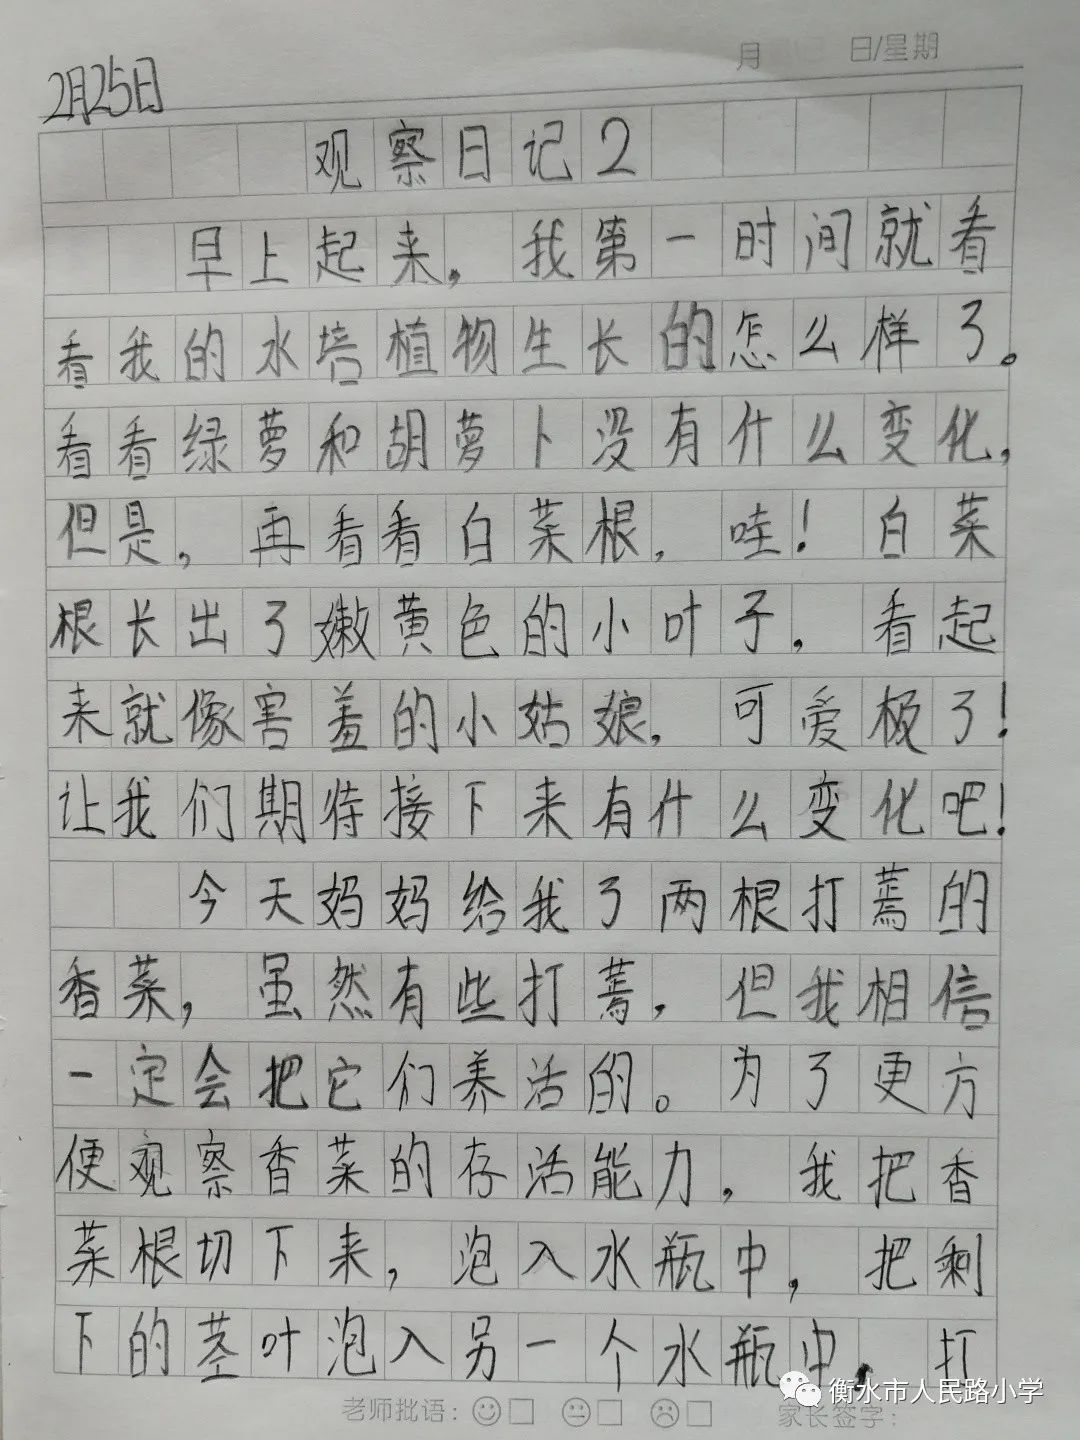 月 日/星期
2月25日
观察日记2
早上起来，我第一时间就看
看我的水培植物生长的怎么样了。
看看绿萝和胡萝卜没有什么变化，
但是，再看看白菜根，哇！白菜
根长出了嫩黄色的小叶子，看起
来就像害羞的小姑娘，可爱极了！
让我们期待接下来有什么变化吧！
今天妈妈给我了两根打蔫的
香菜，虽然有些打蔫，但我相信
一定会把它们养活的。为了更方
便观察香菜的存活能力，我把香
菜根切下来，泡入水瓶中，把剩
下的茎叶泡入另一个水瓶中，打
老师批语：
家长签字：
衡水市人民路小学